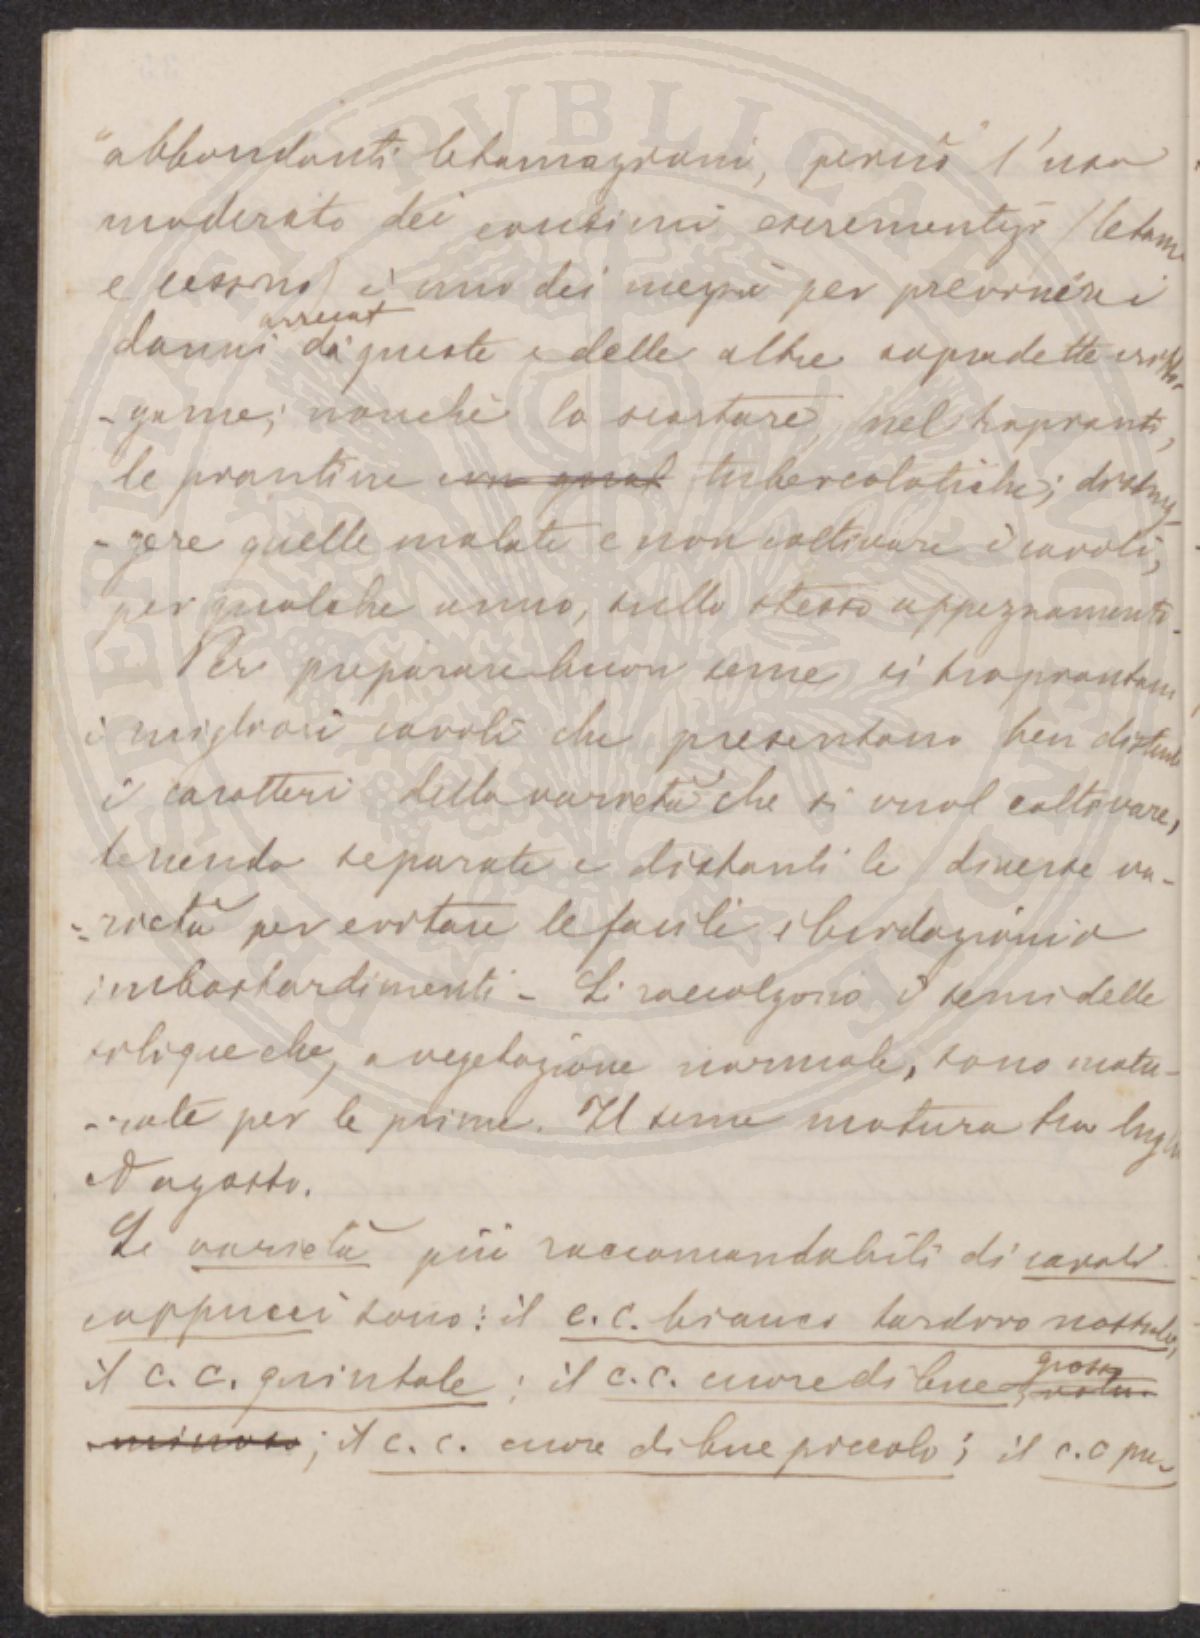 "abbondanti letamazioni, perciò" l'uso
moderato dei concimi escrementizi (letame
e cessino) è uno dei mezzi per prevenire i
danni arrecat di queste e delle altre sopradette critto-
-game; nonchè lo scartare, nel trapianti,
le piantine con qual tubercolotiche; distrug-
-gere quelle malate e non coltivare i cavoli,
per qualche anno, sullo stesso appezzamento.
Per preparare buon seme si trapiantano
i migliori cavoli che presentano ben distinti
i caratteri della varietà che si vuol coltivare,
tenendo separate e distanti le diverse va-
-rietà per evitare le facili ibridazioni o
imbastardimenti - Si raccolgono i semi delle
silique che, a vegetazione normale, sono matu-
-rate per le prime. Il seme matura tra luglio
ed agosto.
Le varietà più raccomandabili di cavoli
cappucci sono: il c. c. bianco tardivo nostrale,
il c. c. quintale; il c. c. cuore di bue grosso volu-
-minoso; il c. c. cuore di bue piccolo; il c. c pu-
PVBLICAE
PROSPERITATI